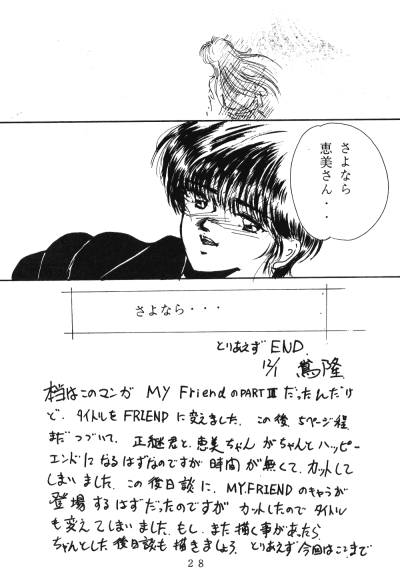 さよなら
恵美さん・・
さよなら・・・
とりあえず END.
12/1 蔦隆
本当はこのマンガ MY FriendのPARTⅢだったんだけ
ど、タイトルをFRIENDに変えました。この後5ページ程
まだつづいて、正継君と、恵美ちゃんがちゃんとハッピー
エンドになるはずなのですが時間が無くて、カットして
しまいました。この後日談に、MY.FRIENDのキャラが
登場するはずだったのですがカットしたのでタイトル
も変えてしまいました。もし、また描く事があったら、
ちゃんとした後日談も描きましょう。とりあえず今回はここまで
28